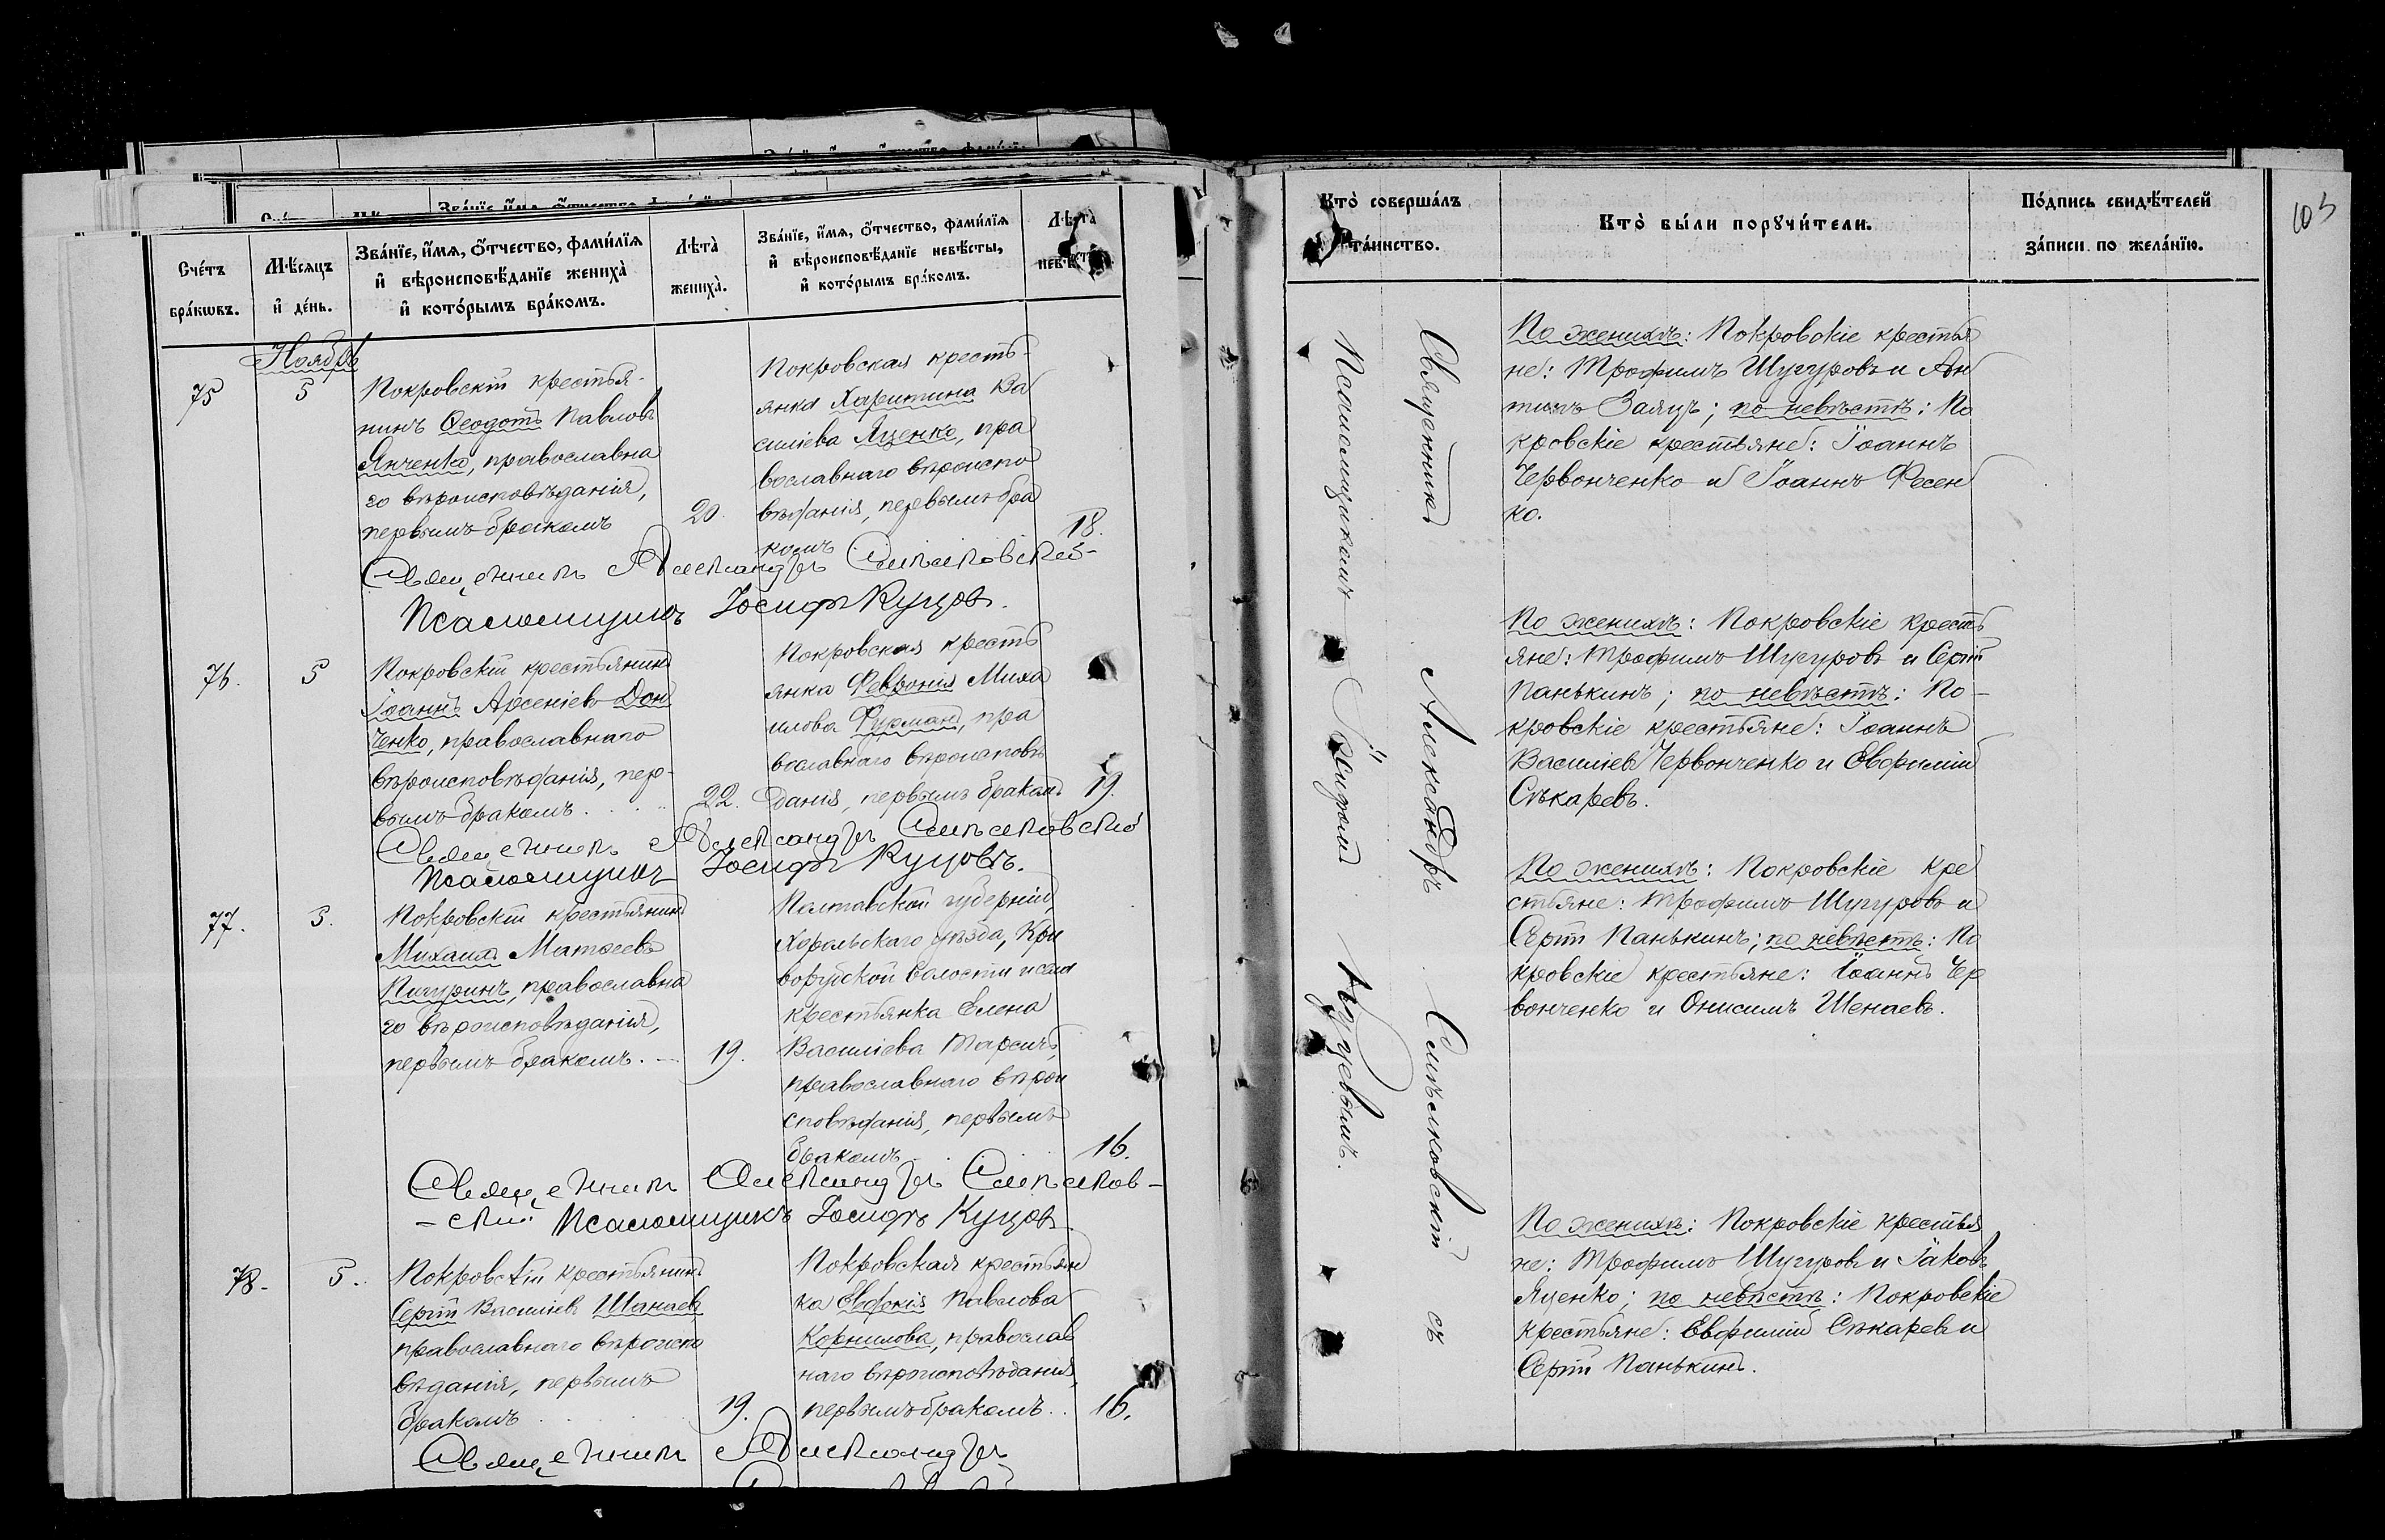 Счéтъ бра́кѡвъ.
Мѣ́сяцъ и҆ де́нь.
Зва́нїе, и҆́мѧ, ѻ҆́тчество, фами́лїѧ
и҆ вѣроисповѣ́данїе жениха̀
и҆ кото́рымъ бра́комъ.
Лѣта̀
жениха̀.
Зва́нїе, и҆́мѧ, ѻ҆́тчество, фами́лїѧ
и҆ вѣроисповѣ́данїе невѣ́сты,
и҆ кото́рымъ бра́комъ.
Лѣта̀
невѣ́сты
Ноябрь
75
5
Покровскій крестья-
нинъ Ѳеодотъ Павловъ
Янченко, православна
го вѣроисповѣданія,
первымъ бракомъ
20.
Покровская кресть-
янка Харитина Ва
силіева Яценко, пра
вославнаго вѣроиспо
вѣданія, первымъ бра
комъ
18.
Священникъ Александръ Смѣлковскій-
Псаломщикъ Іосифъ Куцовъ.
76.
5
Покровскій крестьянинъ
Іоаннъ Арсеніевъ Дон
ченко, православнаго
вѣроисповѣданія, пер-
вымъ бракомъ . . .
22.
Покровская кресть
янка Февронія Миха
илова Фурманъ, пра
вославнаго вѣроисповѣ
данія, первымъ бракомъ
19.
Священникъ Александръ Смѣлковскій
Псаломщикъ Іосифъ Куцовъ.
77.
5.
Покровскій крестьянинъ
Михаилъ Матѳеевъ
Пичуринъ, православна
го вѣроисповѣданія,
первымъ бракомъ.
19.
Полтавской губерніи,
Хорольскаго уѣзда, Кри
ворудской волости и села
крестьянка Елена
Василіева
православнаго вѣрои
сповѣданія, первымъ
бракомъ
16.
Священникъ Александръ Смѣлков-
-скій Псаломщикъ Іосифъ Куцовъ
78.
5.
Покровскій крестьянинъ
Сергій Василіевъ Шанаевъ
православнаго вѣроиспо
вѣданія, первымъ
бракомъ
19.
Покровская крестьян
ка Евфимія Павлова
Корнилова, православ
наго вѣроисповѣданія,
первымъ бракомъ.
16.
Священникъ Александръ
Кто̀ соверша́лъ
та́инство.
Кто̀ бы́ли порꙋчи́тели.
По́дпись свидѣ́телей
за́писи по жела́нїю.
103
Священникъ Александръ Смѣлковскій съ
Псаломщикомъ Іосифомъ Куцовымъ.
По женихѣ: Покровскіе крестья
не: Трофимъ Шугуровъ и Ан
типъ Заяцъ; по невѣстѣ: По
кровскіе крестьяне: Іоаннъ
Червонченко и Іоаннъ Фесен
ко.
По женихѣ: Покровскіе кресть
яне: Трофимъ Шугуровъ и Сергій
Панькинъ; по невѣстѣ: По-
кровскіе крестьяне: Іоаннъ
Василіевъ Червонченко и Евфимій
Сѣкаревъ.
По женихѣ: Покровскіе кре
стьяне: Трофимъ Шугуровъ и
Сергій Панькинъ; по невѣстѣ: По
кровскіе крестьяне: Іоаннъ Чер
вонченко и Онисимъ Шенаевъ.
По женихѣ: Покровскіе крестья
не: Трофимъ Шугуровъ и Іаковъ
Яценко; по невѣстѣ: Покровскіе
крестьяне: Евфимій Сѣкаревъ и
Сергій Панькинъ.